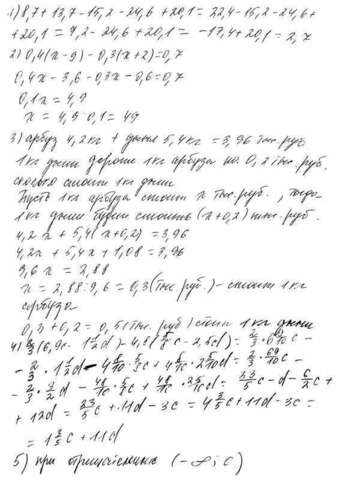 1) 8,7 + 13,7 - 15,2 - 24,6 + 20,1 = 22,4 - 15,2 - 24,6 +
+ 20,1 = 7,2 - 24,6 + 20,1 = -17,4 + 20,1 = 2,7
2) 0,4(x - 9) - 0,3(x + 2) = 0,7
0,4x - 3,6 - 0,3x - 0,6 = 0,7
0,1x = 4,9
x = 4,9 : 0,1 = 49
3) арбуз 4,2 кг + дыня 5,4 кг = 3,96 тыс. руб
1 кг дыни дороже 1 кг арбуза на 0,2 тыс. руб.
сколько стоит 1 кг дыни
Пусть 1 кг арбуза стоит x тыс. руб., тогда
1 кг дыни будет стоить (x + 0,2) тыс. руб.
4,2 x + 5,4 (x + 0,2) = 3,96
4,2x + 5,4x + 1,08 = 3,96
9,6 x = 2,88
x = 2,88 : 9,6 = 0,3 (тыс. руб.) - стоит 1 кг
арбуза
0,3 + 0,2 = 0,5 (тыс. руб) стоит 1 кг дыни
4) 2/3 (6,9c - 1 1/2 d) - 4,8 (5/8 c - 2,5d) = 2/3 · 6 9/10 c -
- 2/3 · 1 1/2 d - 4 8/10 · 5/8 c + 4 8/10 · 2 5/10 d = 2/3 · 69/10 c -
- 2/3 · 3/2 d - 48/10 · 5/8 c + 48/10 · 25/10 d = 23/5 c - d - 6/2 c +
+ 12d = 23/5 c + 11d - 3c = 4 3/5 c + 11d - 3c =
= 1 3/5 c + 11d
5) при (-∞; 0)